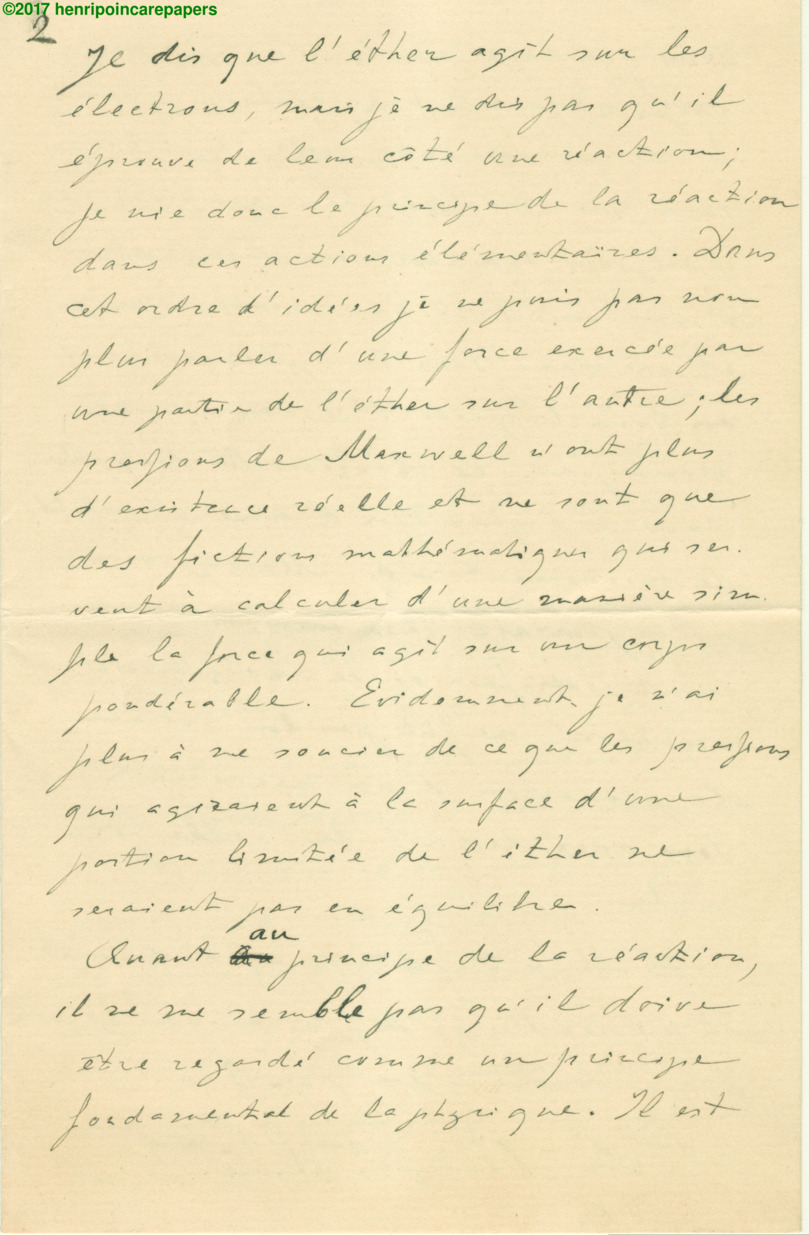 ©2017 henripoincarepapers
2
Je dis que l'éther agit sur les
électrons, mais je ne dis pas qu'il
éprouve de leur côté une réaction;
je nie donc le principe de la réaction
dans ces actions élémentaires. Dans
cet ordre d'idées je ne puis pas non
plus parler d'une force exercée par
une partie de l'éther sur l'autre; les
pressions de Maxwell n'ont plus
d'existence réelle et ne sont que
des fictions mathématiques qui ser-
vent à calculer d'une manière sim-
ple la force qui agit sur un corps
pondérable. Evidemment je n'ai
plus à me soucier de ce que les pressions
qui agiraient à la surface d'une
portion limitée de l'éther ne
seraient pas en équilibre.
Quant au principe de la réaction,
il ne me semble pas qu'il doive
être regardé comme un principe
fondamental de la physique. Il est